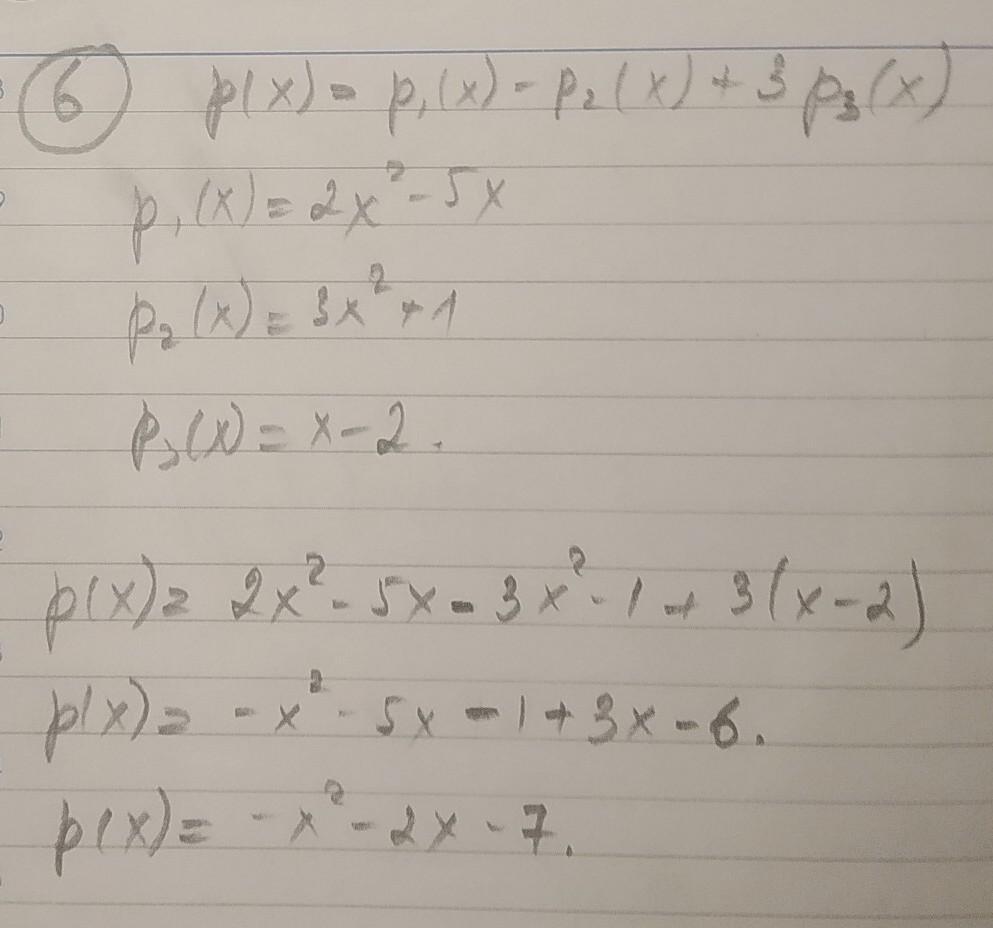 6 p(x) = p₁(x) - p₂(x) + 3 p₃(x)
p₁(x) = 2x² - 5x
p₂(x) = 3x² + 1
p₃(x) = x - 2.
p(x) = 2x² - 5x - 3x² - 1 + 3(x - 2)
p(x) = -x² - 5x - 1 + 3x - 6.
p(x) = -x² - 2x - 7.